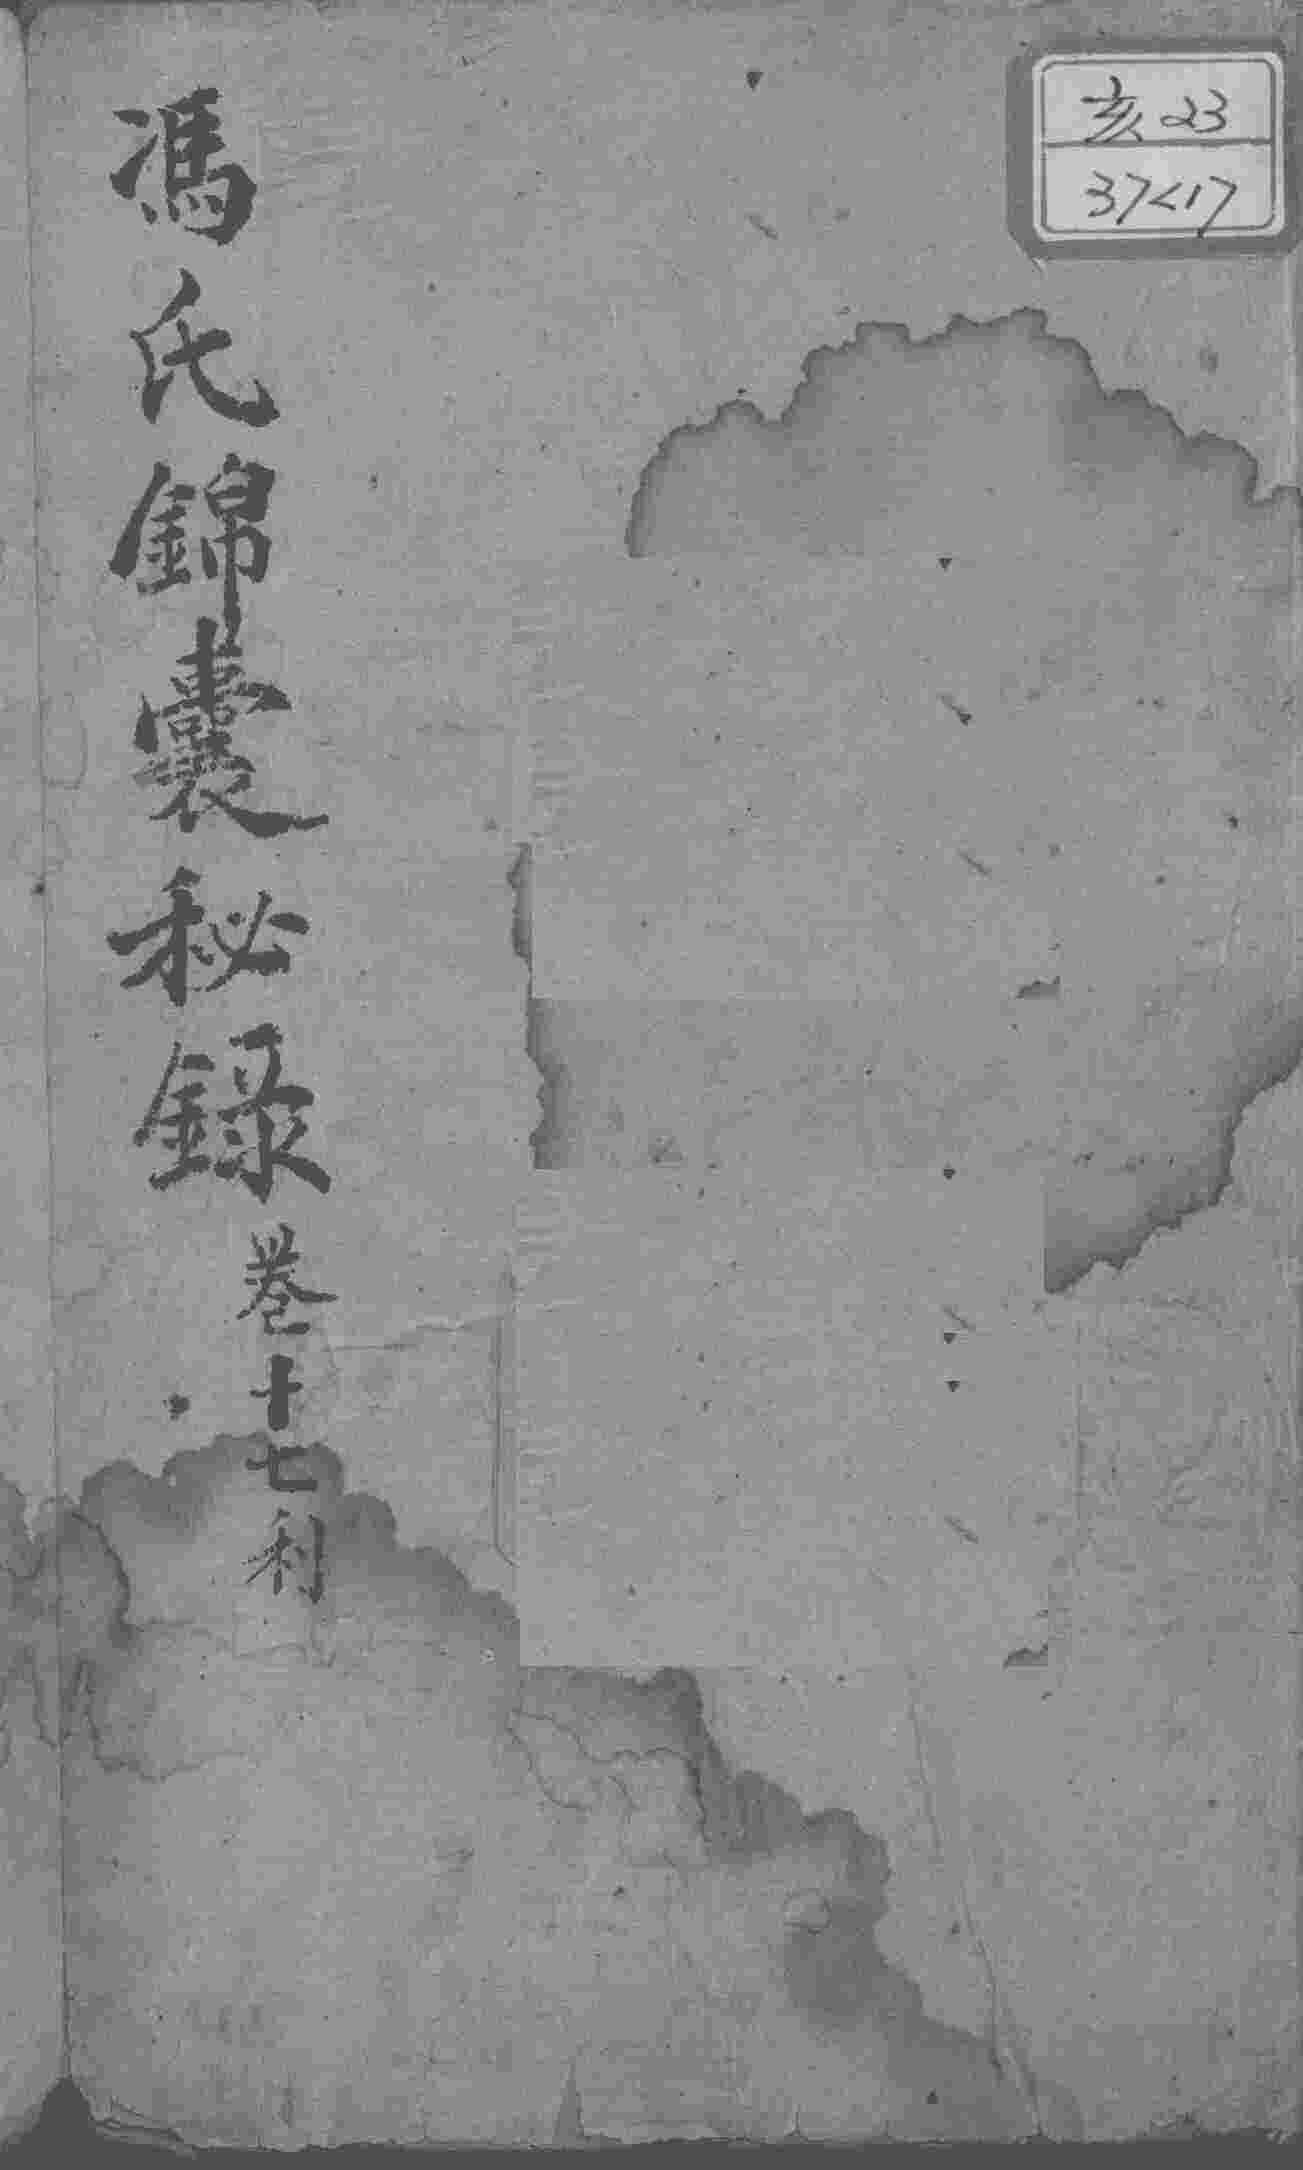 亥23
37<17
馮氏錦囊秘錄
卷十七利